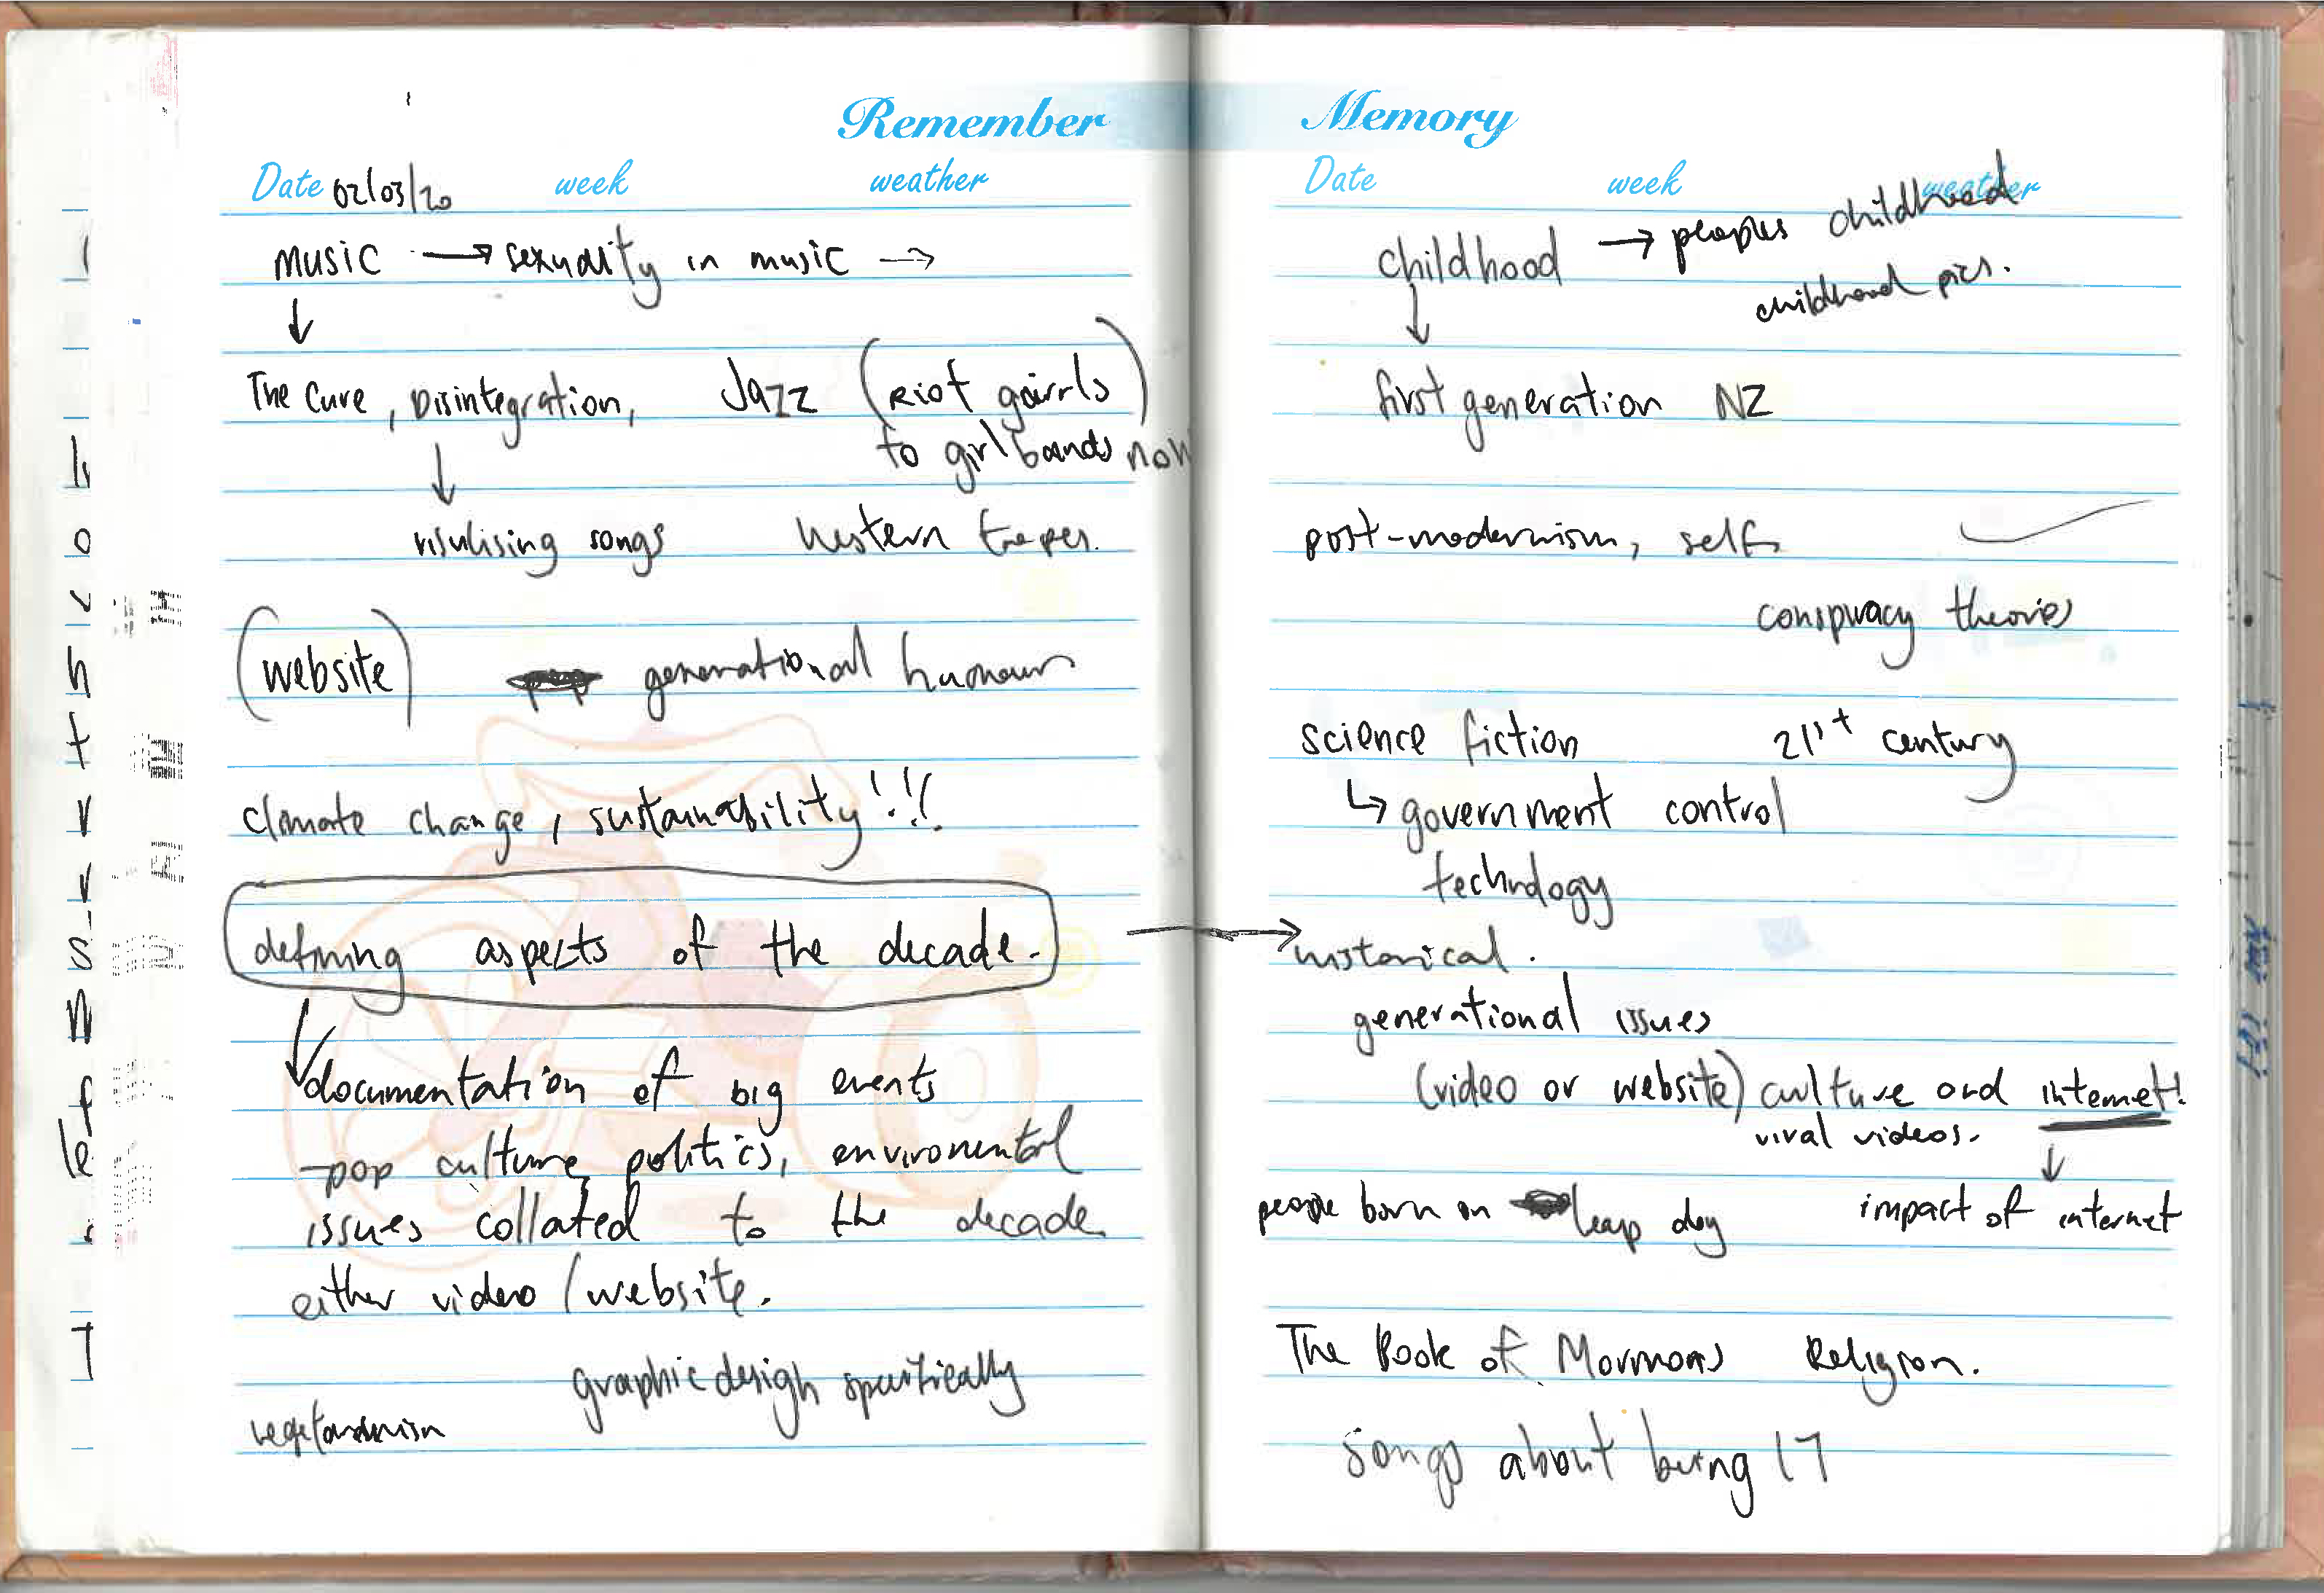 Remember
Date 02/03/20 week weather
music → sexuality in music →
↓
The Cure, Disintegration, Jazz (Riot gairrls)
to girl bands now
↓
visulising songs Western tropes.
(website) generational humour
climate change, sustainability!!!
defining aspects of the decade. →
documentation of big events
-pop culture, politics, enviromental
issues collated to the decade
either video / website.
graphic design specifically
vegetarianism
Memory
Date week weather
childhood → peoples childhood
childhood pics.
↓
first generation NZ
post-modernism, self,
conspiracy theories
science fiction 21st century
↳ government control
technology
historical.
generational issues
(video or website) culture and internet!
viral videos.
↓
people born on leap day impact of internet
The Book of Mormons Religion.
songs about being 17